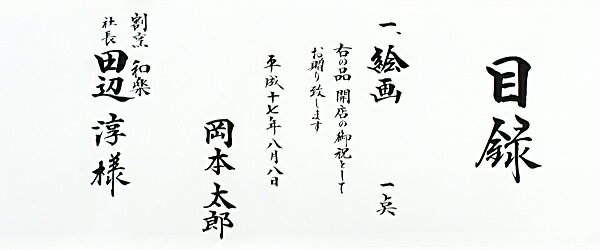 目録
一、絵画 一点
右の品 開店の御祝として
お贈り致します
平成十七年八月八日
岡本太郎
割烹 和楽
社長 田辺淳様